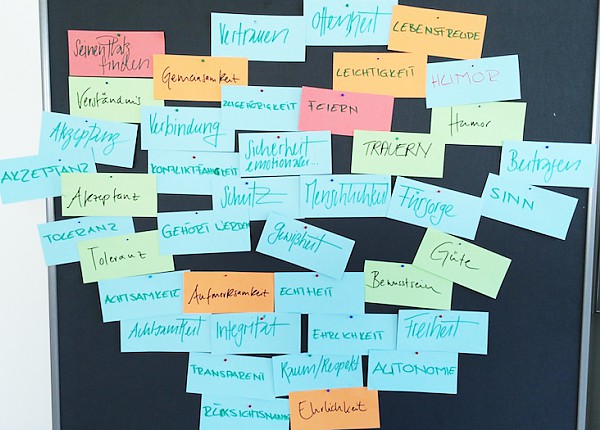 Vertrauen
Offenheit
LEBENSFREUDE
Seinen Platz
finden
Gemeinsamkeit
LEICHTIGKEIT
HUMOR
Verständnis
Verbindung
ZUGEHÖRIGKEIT
FEIERN
Humor
Akzeptanz
Sicherheit
emotionaler...
TRAUERN
Beitragen
AKZEPTANZ
KONFLIKTFÄHIGKEIT
Akzeptanz
Schutz
Menschlichkeit
Fürsorge
SINN
TOLERANZ
GEHÖRT WERDEN
Gewißheit
Güte
Toleranz
ACHTSAMKEIT
Aufmerksamkeit
ECHTHEIT
Bewusstsein
Achtsamkeit
Integrität
EHRLICHKEIT
Freiheit
TRANSPARENT
Raum/Respekt
AUTONOMIE
RÜCKSICHTSNAHME
Ehrlichkeit